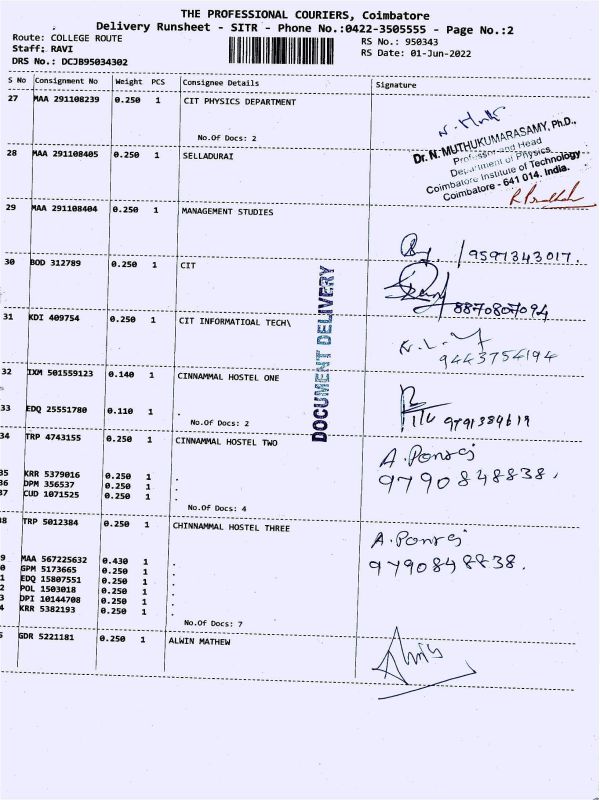 THE PROFESSIONAL COURIERS, Coimbatore
Delivery Runsheet - SITR - Phone No.:0422-3505555 - Page No.:2
Route: COLLEGE ROUTE
RS No.: 950343
Staff: RAVI
RS Date: 01-Jun-2022
DRS No.: DCJB95034302
S No Consignment No Weight PCS Consignee Details Signature
27 MAA 291108239 0.250 1 CIT PHYSICS DEPARTMENT
No.Of Docs: 2
Dr. N. MUTHUKUMARASAMY, Ph.D.,
Professor and Head
Department of Physics
Coimbatore Institute of Technology
Coimbatore - 641 014. India.
28 MAA 291108405 0.250 1 SELLADURAI
29 MAA 291108404 0.250 1 MANAGEMENT STUDIES
9597343017.
30 BOD 312789 0.250 1 CIT
8870807094
DOCUMENT DELIVERY
31 KDI 409754 0.250 1 CIT INFORMATIOAL TECH\
9443754194
32 IXM 501559123 0.140 1 CINNAMMAL HOSTEL ONE
33 EDQ 25551780 0.110 1 .
No.Of Docs: 2
9791384619
34 TRP 4743155 0.250 1 CINNAMMAL HOSTEL TWO
A. Ponraj
9790848838.
35 KRR 5379016 0.250 1 .
36 DPM 356537 0.250 1 .
37 CUD 1071525 0.250 1 .
No.Of Docs: 4
38 TRP 5012384 0.250 1 CHINNAMMAL HOSTEL THREE
A. Ponraj
9790848838.
9 MAA 567225632 0.430 1 .
0 GPM 5173665 0.250 1 .
1 EDQ 15807551 0.250 1 .
2 POL 1503018 0.250 1 .
3 DPI 10144708 0.250 1 .
4 KRR 5382193 0.250 1 .
No.Of Docs: 7
5 GDR 5221181 0.250 1 ALWIN MATHEW